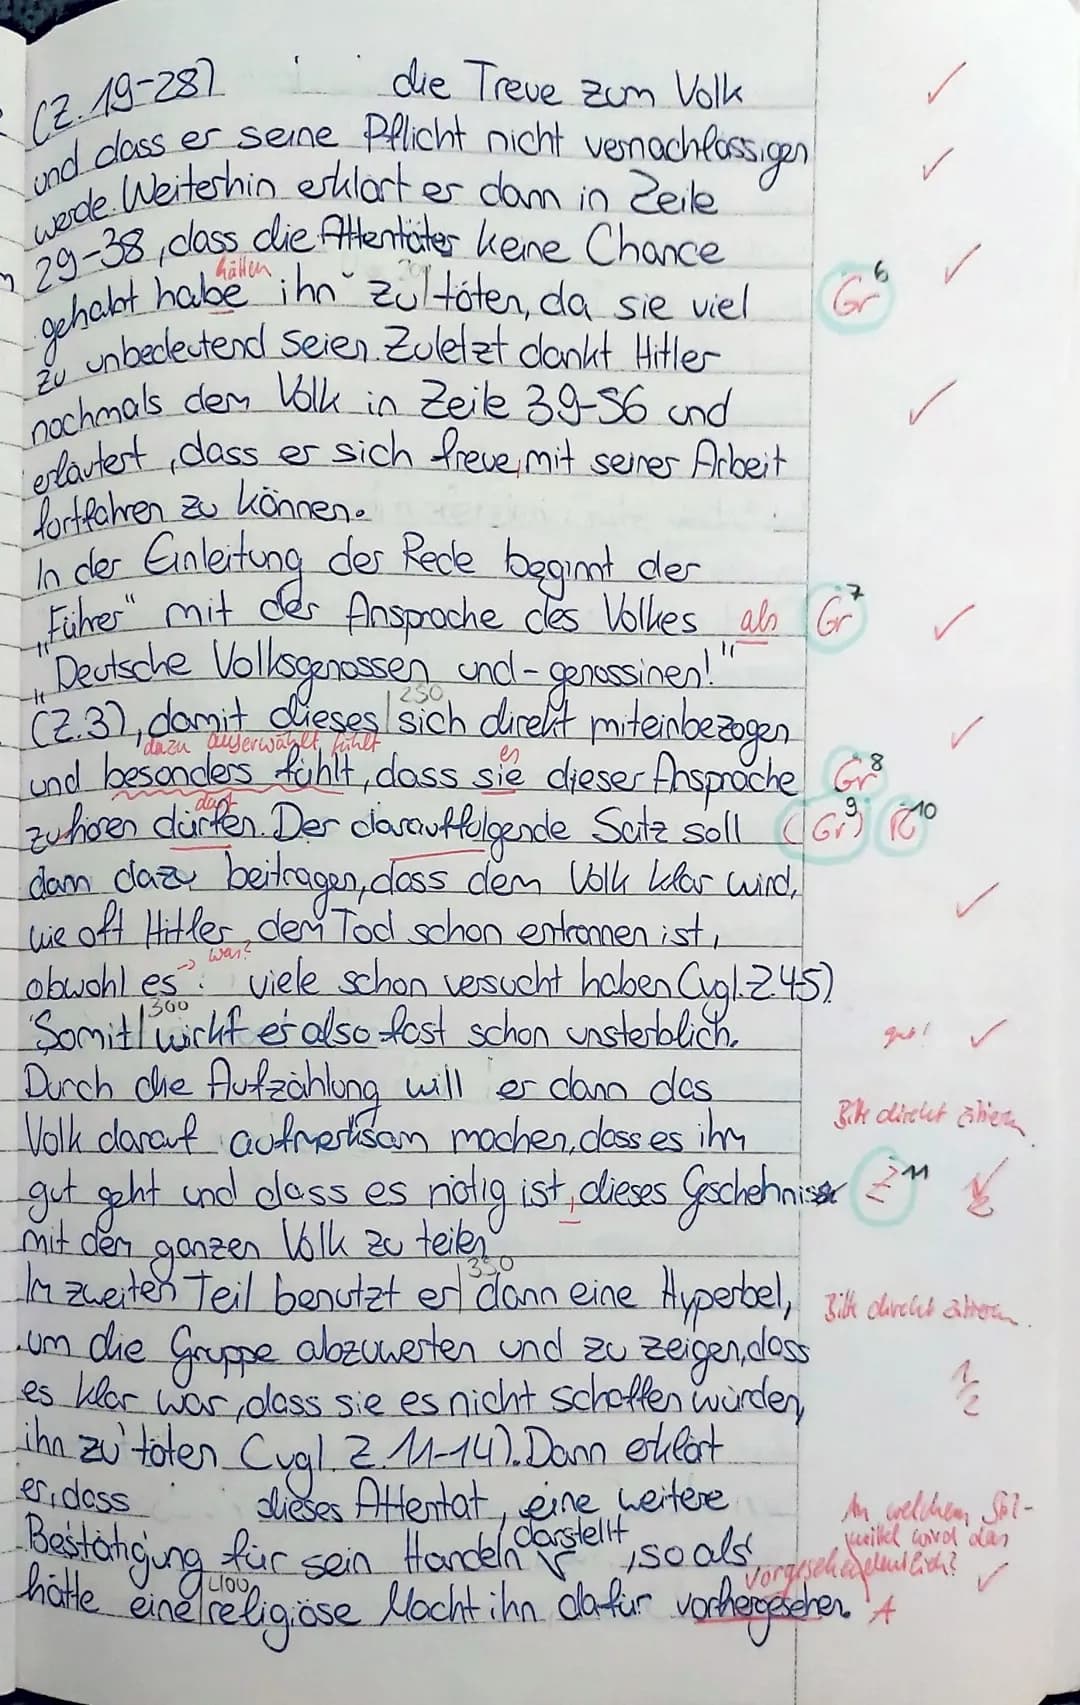 (Z. 19-28) die Treue zum Volk ✓
und dass er seine Pflicht nicht vernachlässigen ✓
werde. Weiterhin erklärt er dann in Zeile
29-38, dass die Attentäter keine Chance ✓
hätten
gehabt habe ihn zu töten, da sie viel Gr 6
zu unbedeutend seien. Zuletzt dankt Hitler
nochmals dem Volk in Zeile 39-56 und ✓
erläutert, dass er sich freue, mit seiner Arbeit
fortfahren zu können.
In der Einleitung der Rede beginnt der
„Führer" mit der Ansprache des Volkes als Gr 7 ✓
„Deutsche Volksgenossen und -genossinen!"
250
(Z.3), damit dieses | sich direkt miteinbezogen ✓
dazu auserwählt fühlt es
und besonders fühlt, dass sie dieser Ansprache Gr 8
darf
zuhören dürfen. Der darauffolgende Satz soll (Gr) 9 R 10
dann dazu beitragen, dass dem Volk klar wird,
wie oft Hitler dem Tod schon entronnen ist, ✓
→ was?
obwohl es viele schon versucht haben (vgl. Z.45)
300
Somit | wirkt er also fast schon unsterblich. gut! ✓
Durch die Aufzählung will er dann das
Volk darauf aufmerksam machen, dass es ihm Bitte direkt zitieren
gut geht und dass es nötig ist, dieses Geschehnisse Z 11
mit dem ganzen Volk zu teilen
350
Im zweiten Teil benutzt er | dann eine Hyperbel, Bitte direkt zitieren.
um die Gruppe abzuwerten und zu zeigen, dass
es klar war, dass sie es nicht schaffen würden, 1/2
ihn zu töten (vgl. Z. 11-14). Dann erklärt
er, dass dieses Attentat, eine weitere An welchem Stil-
Bestätigung für sein Handeln darstellt, so als mittel wird das
vorgesehen deutlich? ✓
400
hätte eine | religiöse Macht ihn dafür vorhergesehen. A